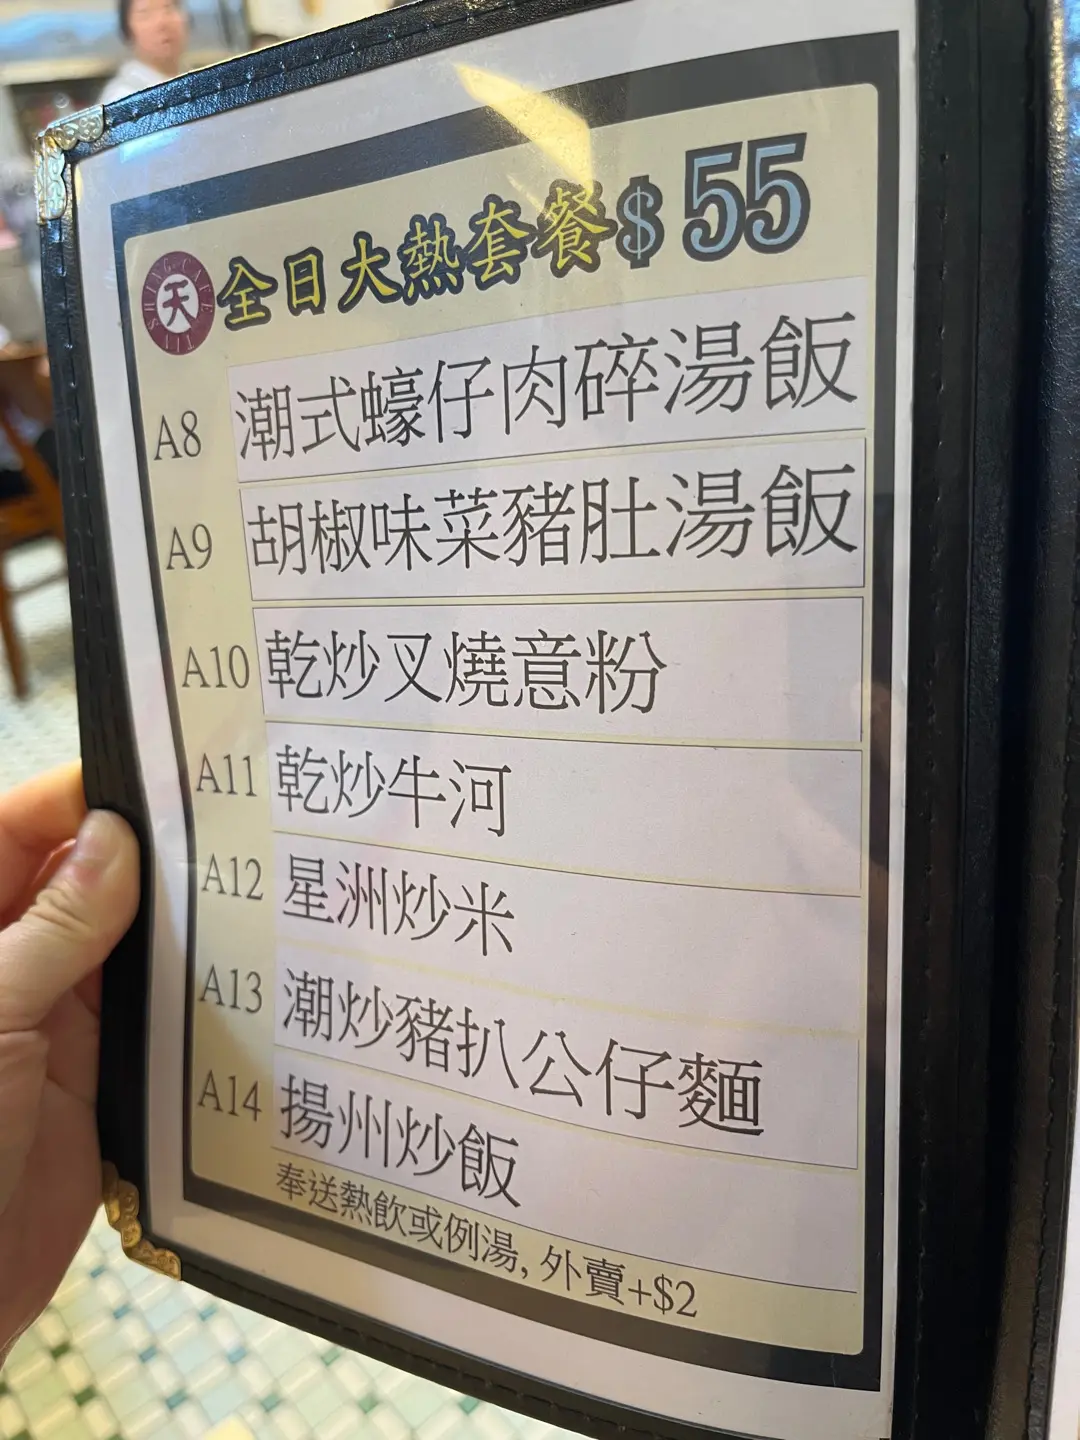 天
TIN SHING CAFE
全日大熱套餐$55
A8 潮式蠔仔肉碎湯飯
A9 胡椒味菜豬肚湯飯
A10 乾炒叉燒意粉
A11 乾炒牛河
A12 星洲炒米
A13 潮炒豬扒公仔麵
A14 揚州炒飯
奉送熱飲或例湯, 外賣+$2